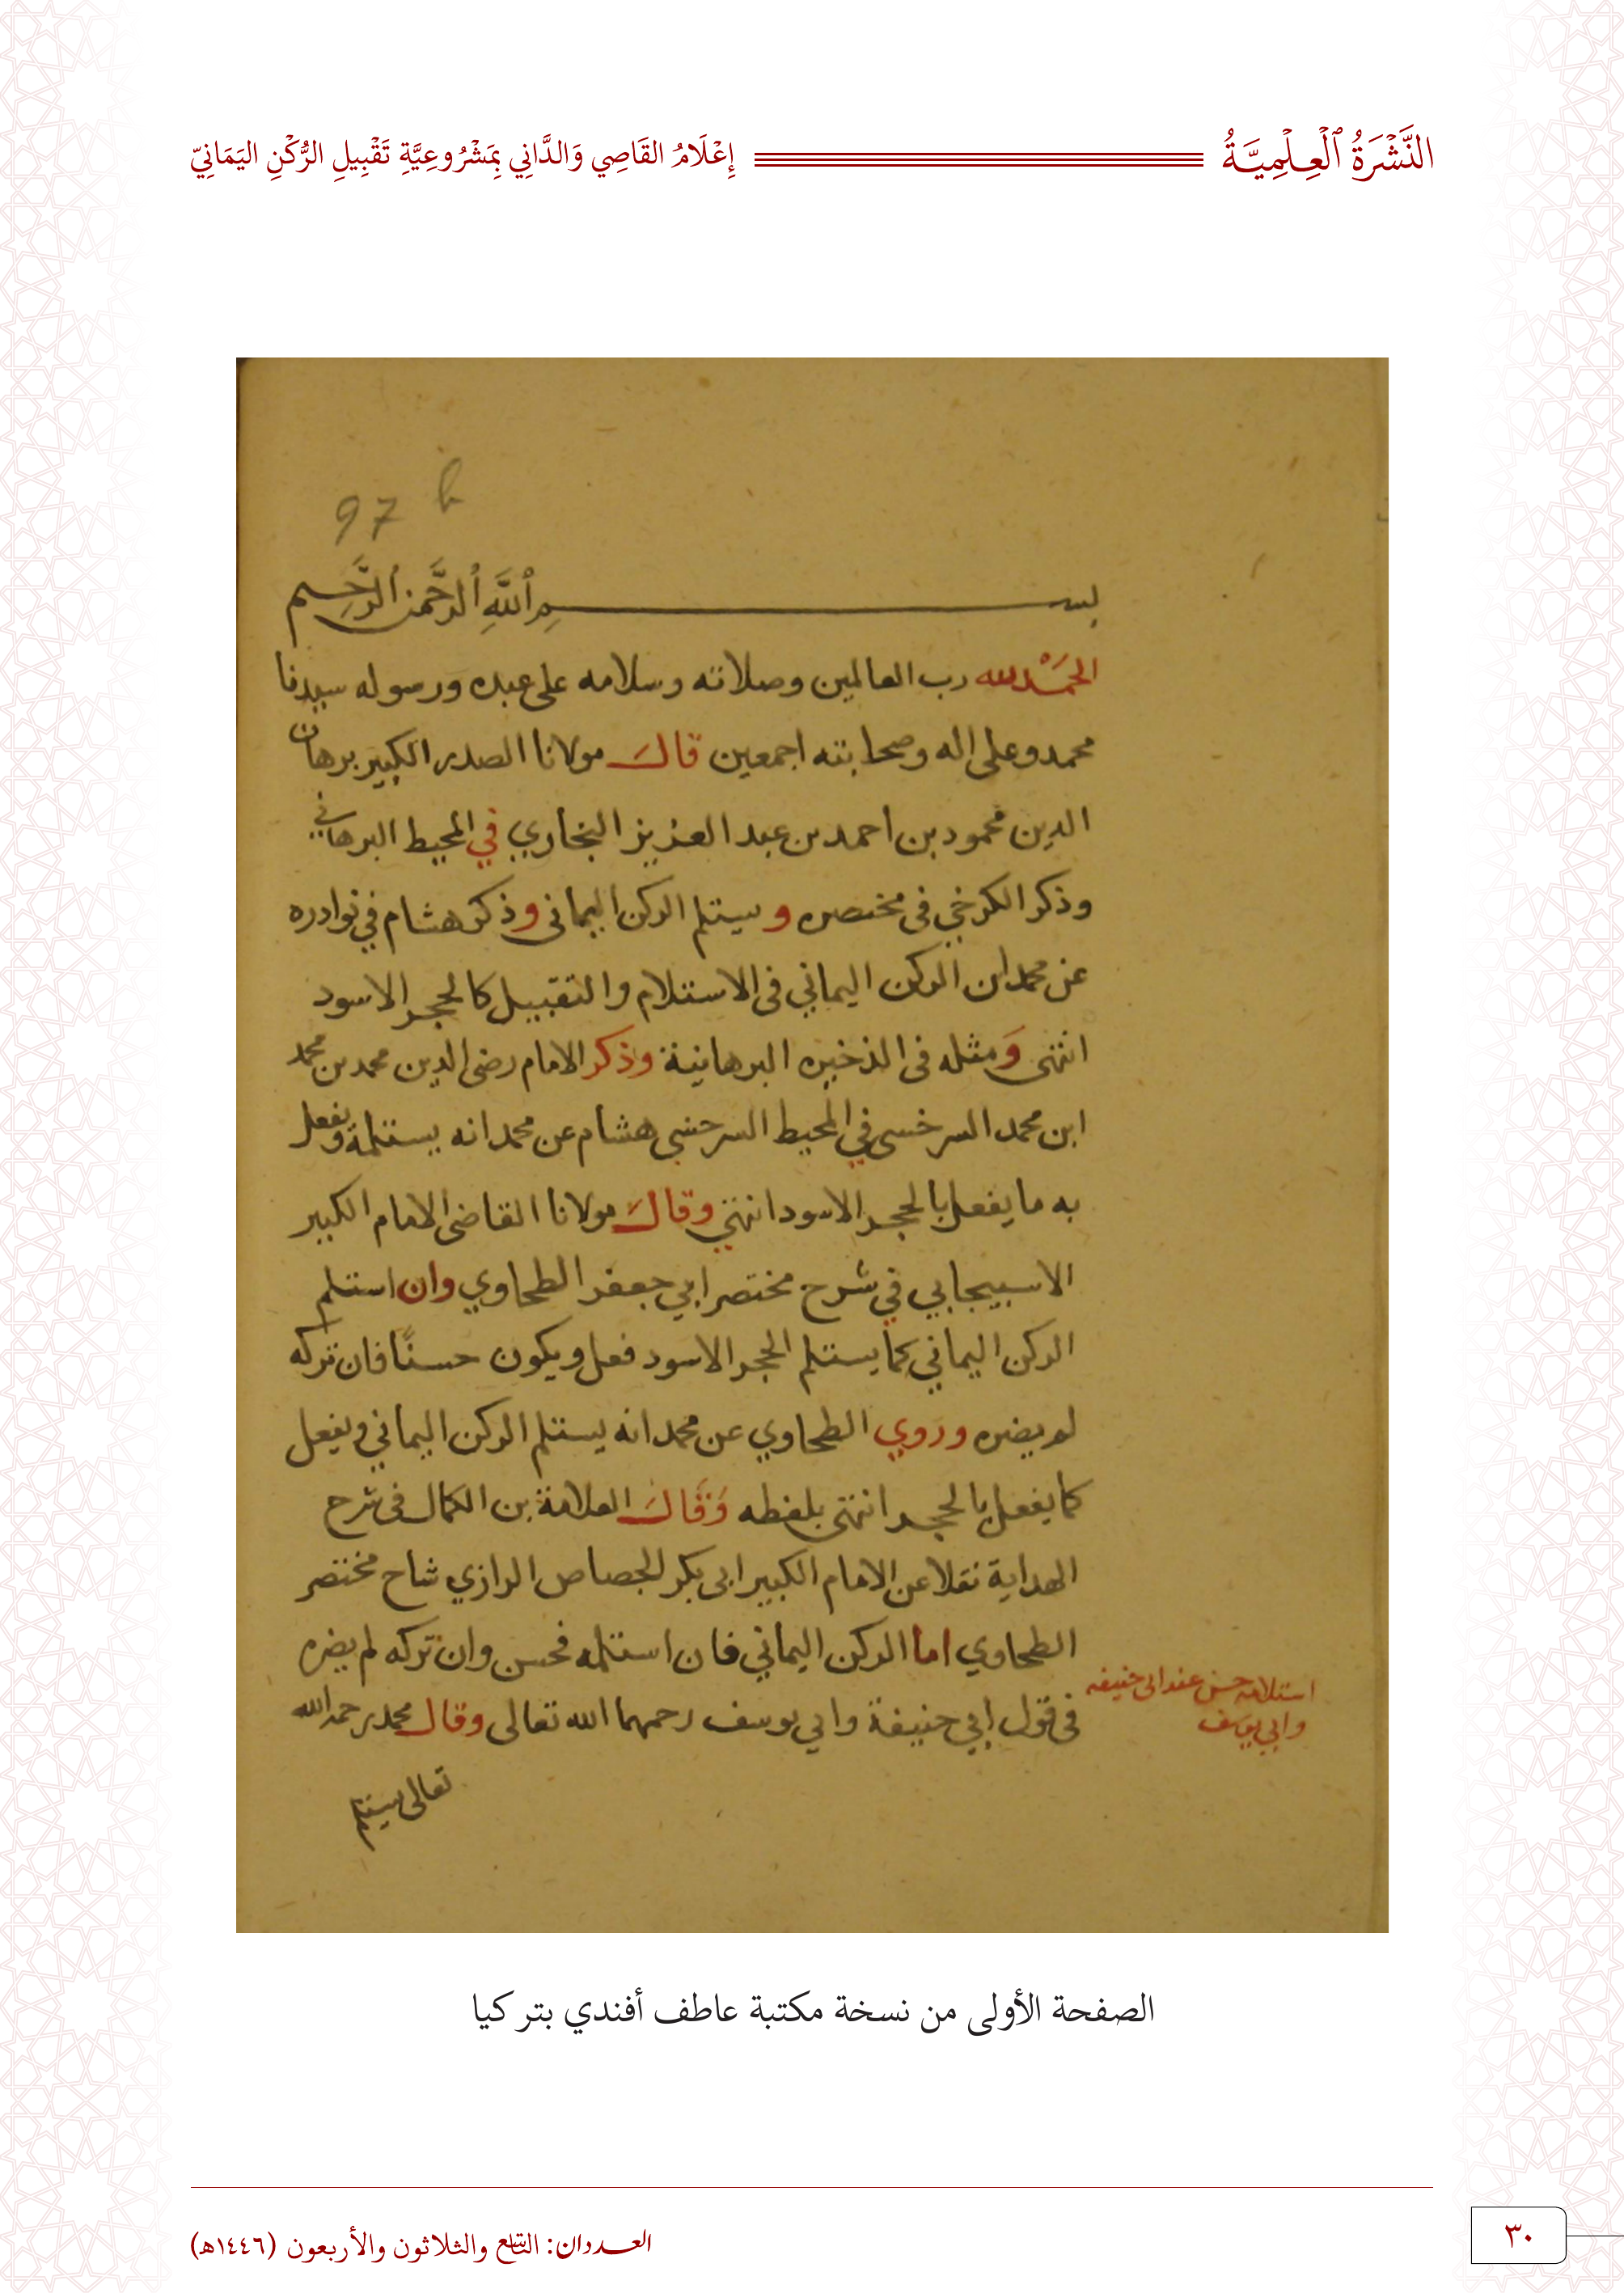 النَّشْرَةُ ٱلْعِلْمِيَّةُ
إِعْلَامُ القَاصِي وَالدَّانِي بِمَشْرُوعِيَّةِ تَقْبِيلِ الرُّكْنِ اليَمَانِيِّ
97 b
بسم ٱللَّهِ ٱلرَّحْمن ٱلرَّحِيم
الحَمْد لله رب العالمين وصلاته وسلامه على عبده ورسوله سيدنا
محمد وعلى اله وصحابته اجمعين قال مولانا الصدر الكبير برهان
الدين محمود بن احمد بن عبد العزيز البخاري في المحيط البرهاني
وذكر الكرخي في مختصره ويستلم الركن اليماني وذكر هشام في نوادره
عن محمد ان الركن اليماني في الاستلام والتقبيل كالحجر الاسود
انتهى وَمثله في الذخيره البرهانية وذكر الامام رضي الدين محمد بن محمد
ابن محمد السرخسي في المحيط السرخسي هشام عن محمد انه يستلمه ويفعل
به ما يفعل بالحجر الاسود انتهى وقال مولانا القاضي الامام الكبير
الاسبيجابي في شرح مختصر ابي جعفر الطحاوي وان استلم
الركن اليماني كما يستلم الحجر الاسود فعل ويكون حسنًا فان تركه
لم يضره وروي الطحاوي عن محمد انه يستلم الركن اليماني ويفعل
كما يفعل بالحجر انتهى بلفظه وَقال العلامة بن الكمال في شرح
الهداية نقلا عن الامام الكبير ابي بكر الجصاص الرازي شاح مختصر
الطحاوي اما الركن اليماني فان استلمه فحسن وان تركه لم يضره
في قول ابي حنيفة وابي يوسف رحمهما الله تعالى وقال محمد رحمه الله
تعالى يستلم
استلامه حسن عند ابي حنيفه
وابي يوسف
الصفحة الأولى من نسخة مكتبة عاطف أفندي بتركيا
العددان: التاسع والثلاثون والأربعون (١٤٤٦هـ)
٣٠